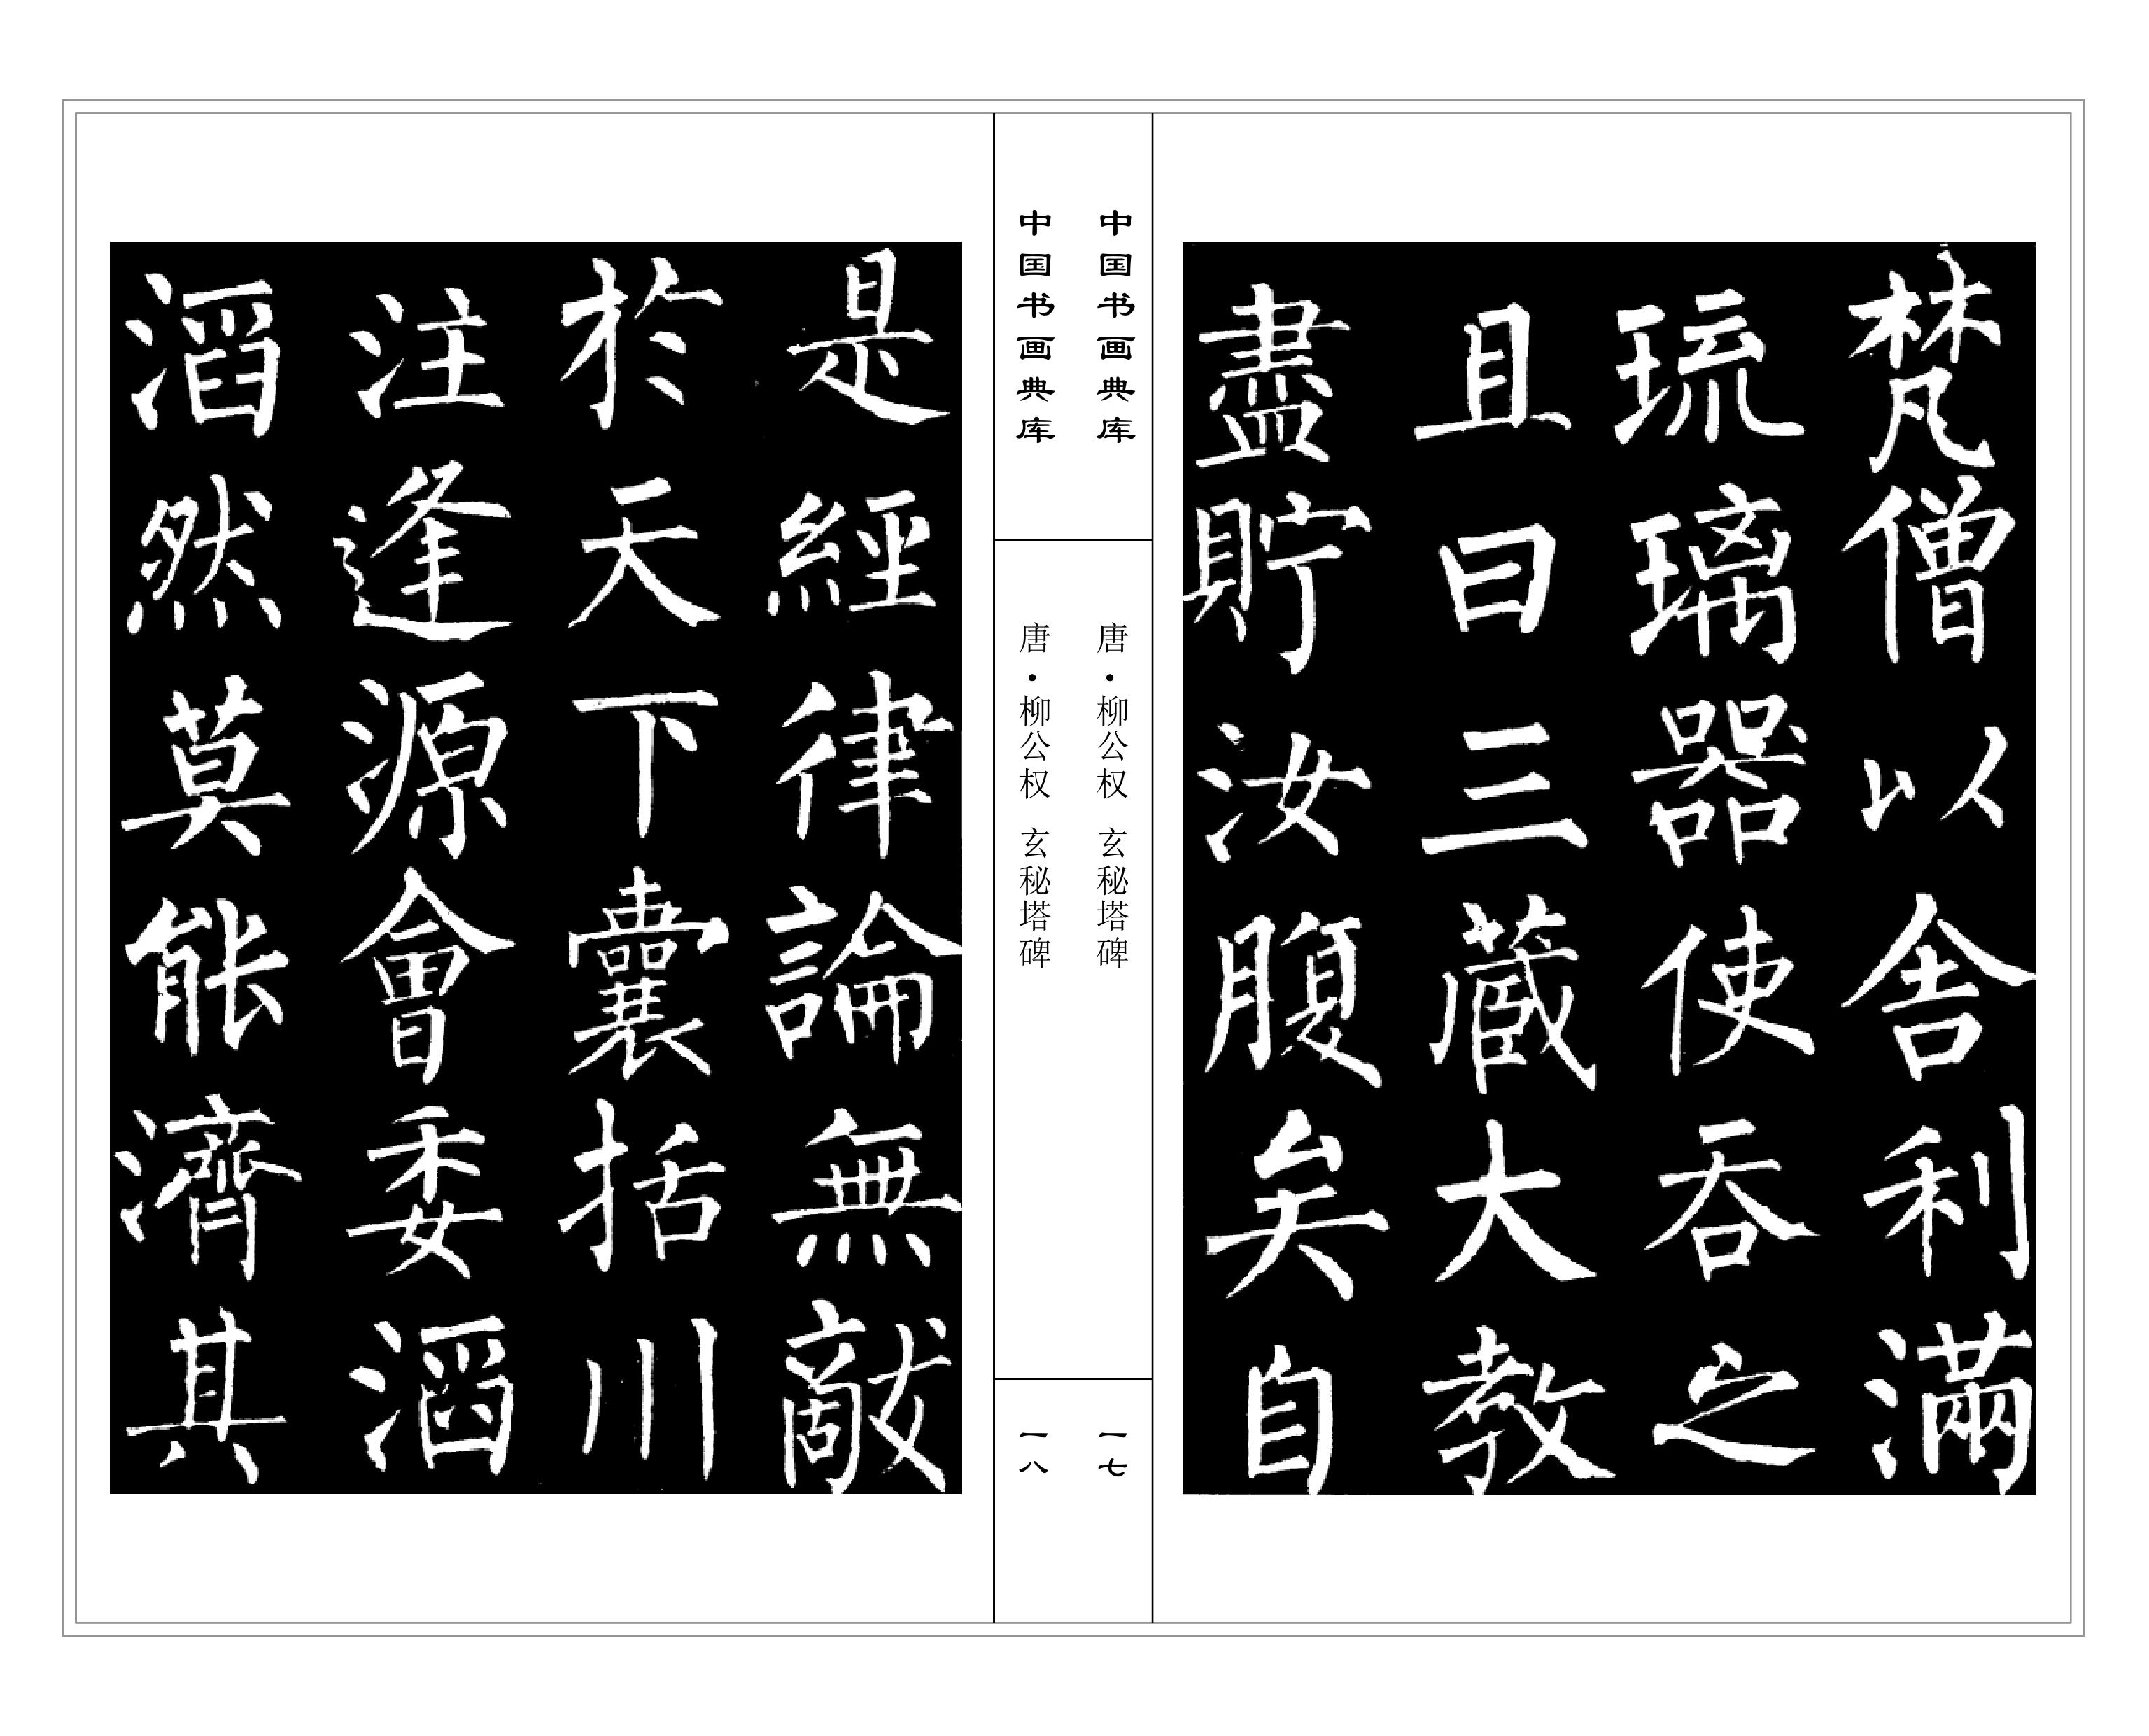 梵僧以舎利滿
琉璃器使吞之
且曰三藏大教
盡貯汝腹矣自
中国书画典库
唐·柳公权 玄秘塔碑
一七
中国书画典库
唐·柳公权 玄秘塔碑
一八
是經律論無敵
於天下囊括川
注逢源會委滔
滔然莫能濟其